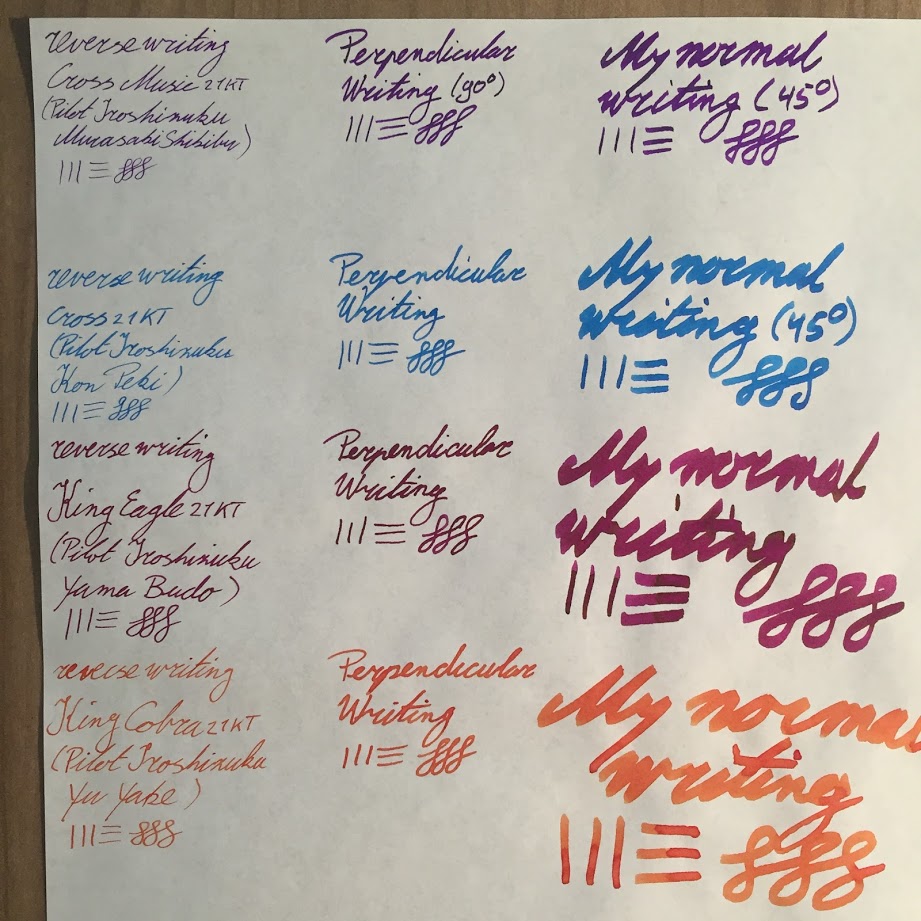 reverse writing
Cross Music 21KT
(Pilot Iroshizuku
Murasaki Shikibu)
Perpendicular
Writing (90°)
My normal
writing (45°)
reverse writing
Cross 21KT
(Pilot Iroshizuku
Kon Peki)
Perpendicular
Writing
My normal
writing (45°)
reverse writing
King Eagle 21KT
(Pilot Iroshizuku
Yama Budo)
Perpendicular
Writing
My normal
writing
reverse writing
King Cobra 21KT
(Pilot Iroshizuku
Yu Yake)
Perpendicular
Writing
My normal
writing